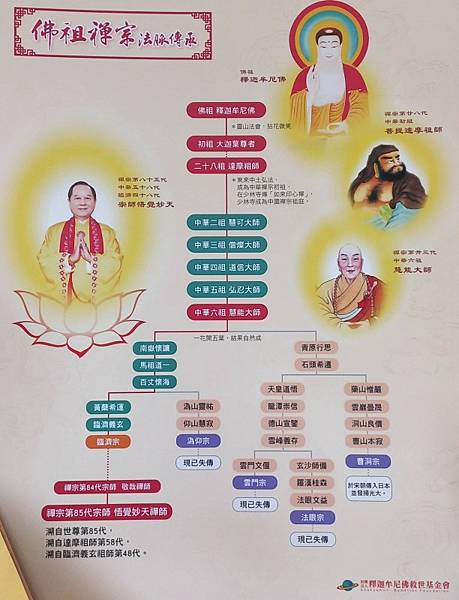 佛祖禪宗法脈傳承
佛祖
釋迦牟尼佛
禪宗第廿八代
中華初祖
菩提達摩祖師
禪宗第八十五代
中華五十八代
臨濟四十八代
宗師悟覺妙天
禪宗第卅三代
中華六祖
慧能大師
佛祖 釋迦牟尼佛
*靈山法會,拈花微笑
初祖 大迦葉尊者
二十八祖 達摩祖師
*東來中土弘法,
成為中華禪宗初祖,
在少林寺傳「如來印心禪」,
少林寺成為中國禪宗祖庭。
中華二祖 慧可大師
中華三祖 僧燦大師
中華四祖 道信大師
中華五祖 弘忍大師
中華六祖 慧能大師
一花開五葉,結果自然成
南嶽懷讓
馬祖道一
百丈懷海
青原行思
石頭希遷
黃蘗希運
臨濟義玄
臨濟宗
溈山靈祐
仰山慧寂
溈仰宗
現已失傳
天皇道悟
龍潭崇信
德山宣鑒
雪峰義存
藥山惟儼
雲巖曇晟
洞山良價
曹山本寂
曹洞宗
於宋朝傳入日本
並發揚光大。
雲門文偃
雲門宗
現已失傳
玄沙師備
羅漢桂森
法眼文益
法眼宗
現已失傳
禪宗第84代宗師 敬哉禪師
禪宗第85代宗師 悟覺妙天禪師
溯自世尊第85代,
溯自達摩祖師第58代,
溯自臨濟義玄祖師第48代。
釋迦牟尼佛救世基金會